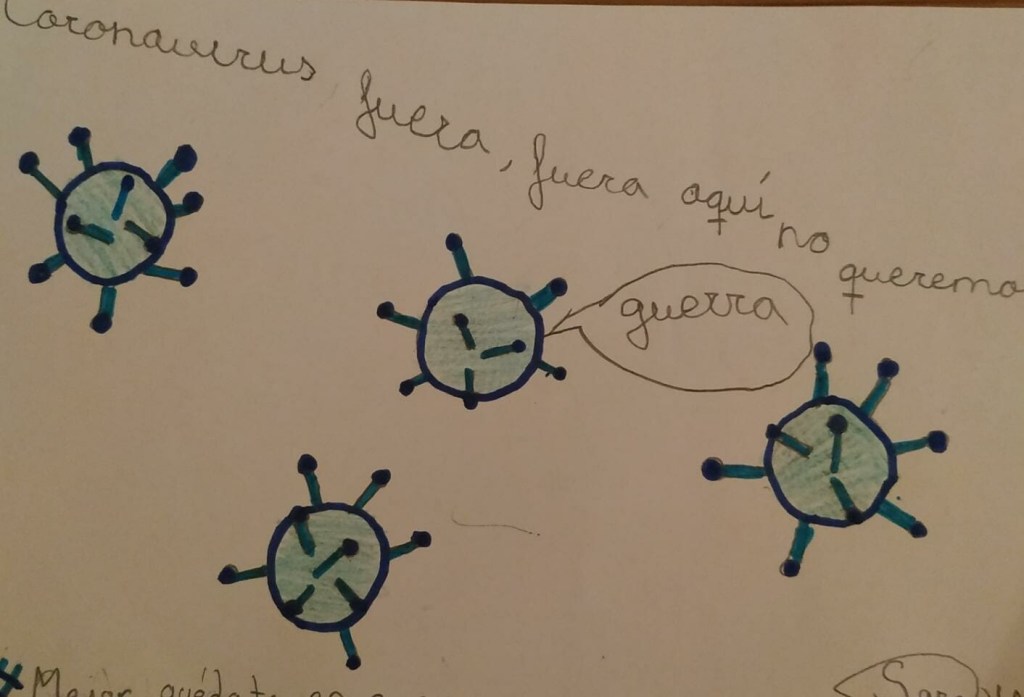 Coronavirus fuera, fuera aquí no queremo
guerra
# Mejor quédate en